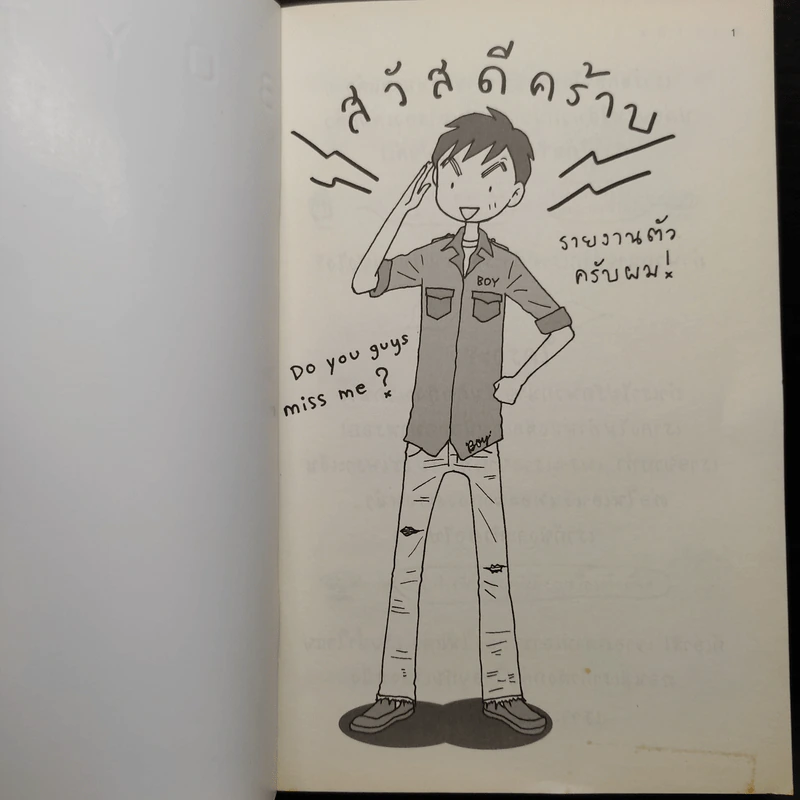 1
สวัสดีคร้าบ
รายงานตัว
ครับผม!
BOY
Do you guys
miss me?
BOY